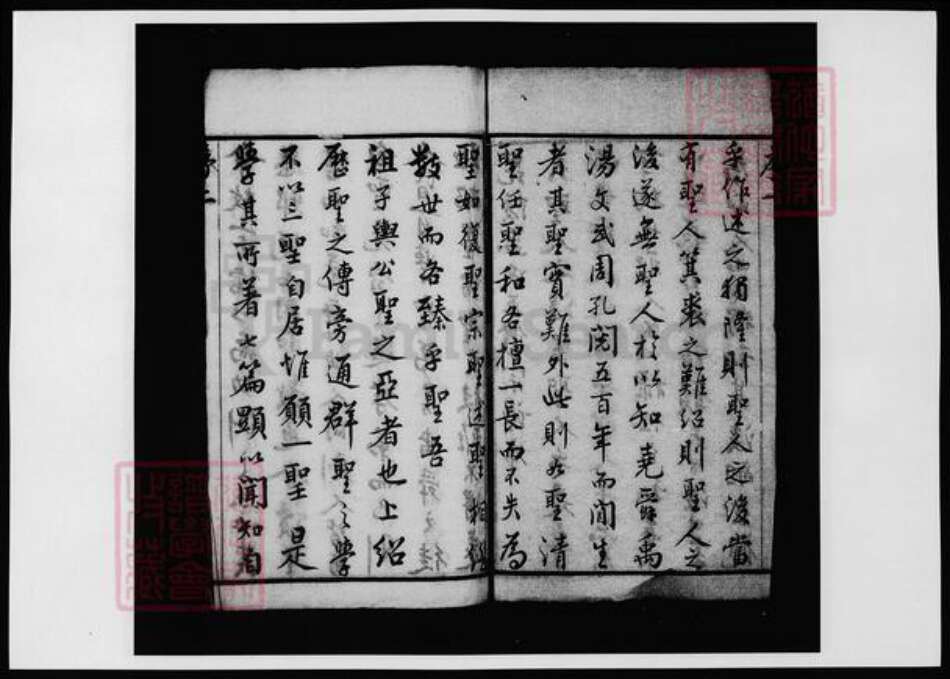 序一
乎作述之獨隆則聖人之後當
有聖人箕裘之難紹則聖人之
後遂無聖人於以知堯舜禹
湯文武周孔閱五百年而間生
者其聖實難外此則如聖清
聖任聖和各擅一長而不失為
聖如復聖宗聖述聖相
數世而各臻乎聖吾
祖子輿公聖之亞者也上紹
歷聖之傳旁通群聖之學
不以三聖自居惟願一聖是
學其所著七篇顯以聞知自
序二